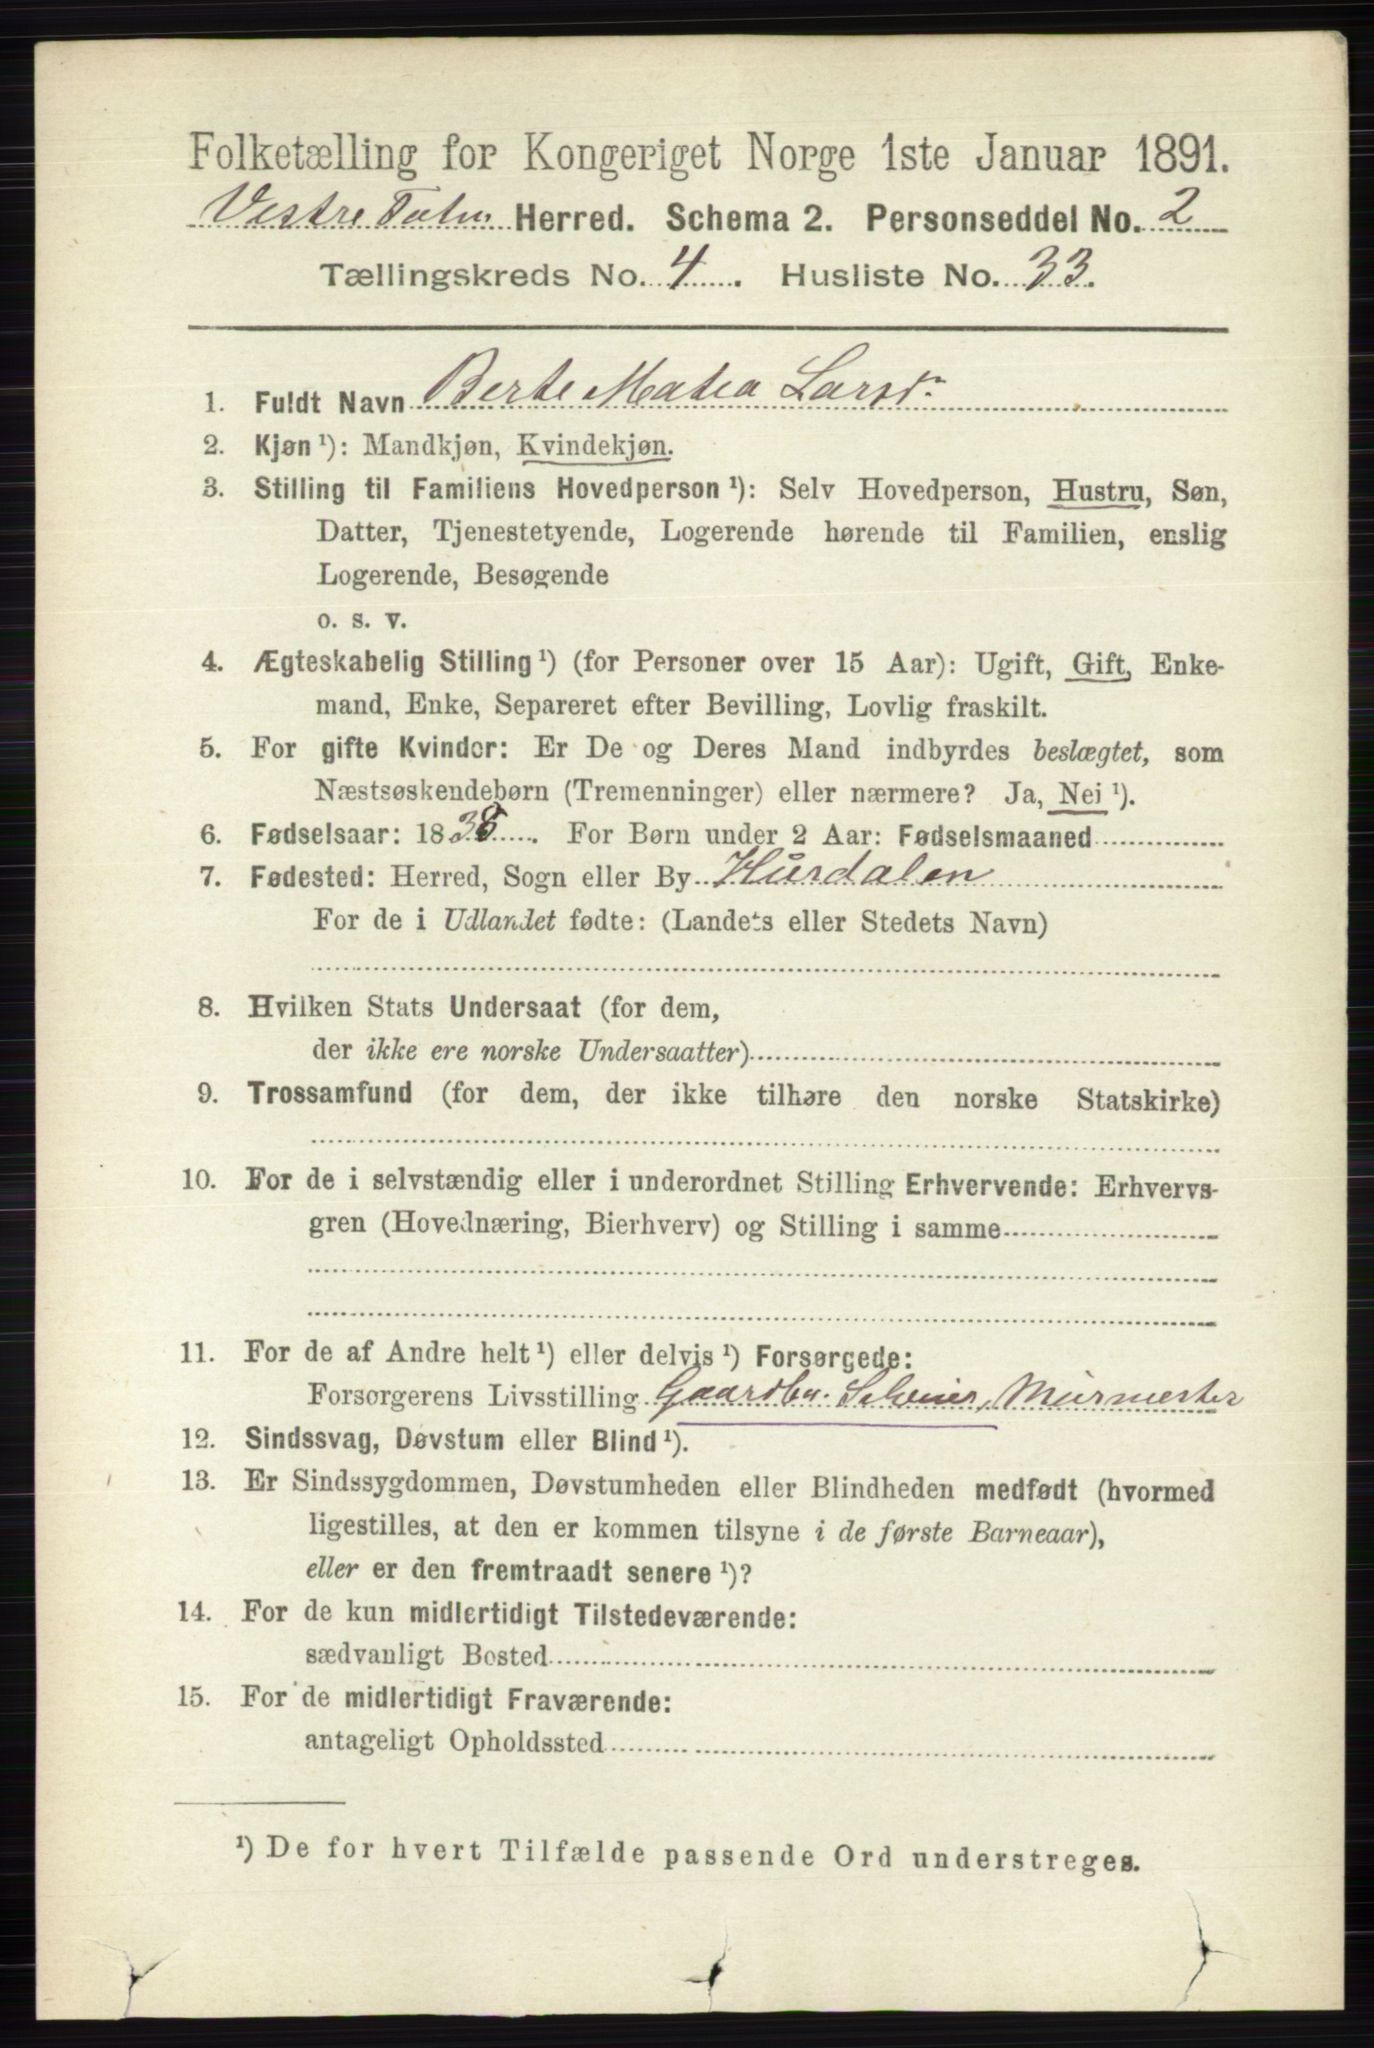 Folketælling for Kongeriget Norge 1ste Januar 1891.
Vestre Toten Herred. Schema 2. Personseddel No. 2
Tællingskreds No. 4. Husliste No. 33.
1. Fuldt Navn Berte Matea Larsd.
2. Kjøn ¹): Mandkjøn, Kvindekjøn.
3. Stilling til Familiens Hovedperson ¹): Selv Hovedperson, Hustru, Søn,
Datter, Tjenestetyende, Logerende hørende til Familien, enslig
Logerende, Besøgende
o. s. v.
4. Ægteskabelig Stilling ¹) (for Personer over 15 Aar): Ugift, Gift, Enke-
mand, Enke, Separeret efter Bevilling, Lovlig fraskilt.
5. For gifte Kvinder: Er De og Deres Mand indbyrdes beslægtet, som
Næstsøskendebørn (Tremenninger) eller nærmere? Ja, Nei ¹).
6. Fødselsaar: 1838. For Børn under 2 Aar: Fødselsmaaned
7. Fødested: Herred, Sogn eller By Hurdalen
For de i Udlandet fødte: (Landets eller Stedets Navn)
8. Hvilken Stats Undersaat (for dem,
der ikke ere norske Undersaatter)
9. Trossamfund (for dem, der ikke tilhøre den norske Statskirke)
10. For de i selvstændig eller i underordnet Stilling Erhvervende: Erhvervs-
gren (Hovednæring, Bierhverv) og Stilling i samme
11. For de af Andre helt ¹) eller delvis ¹) Forsørgede:
Forsørgerens Livsstilling Gaardbr. Seleier, Murmester
12. Sindssvag, Døvstum eller Blind ¹).
13. Er Sindssygdommen, Døvstumheden eller Blindheden medfødt (hvormed
ligestilles, at den er kommen tilsyne i de første Barneaar),
eller er den fremtraadt senere ¹)?
14. For de kun midlertidigt Tilstedeværende:
sædvanligt Bosted
15. For de midlertidigt Fraværende:
antageligt Opholdssted
¹) De for hvert Tilfælde passende Ord understreges.